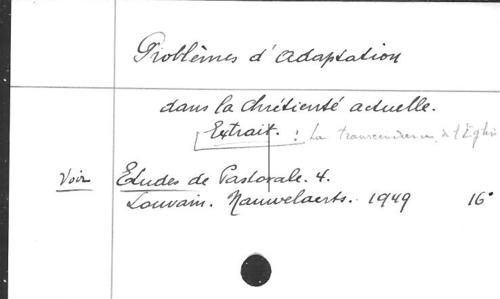 Problèmes d'Adaptation
dans la chrétienté actuelle.
Extrait. : La transcendance de l'Eglise
Voir Etudes de Pastorale. 4.
Louvain. Nauwelaerts. 1949 16°